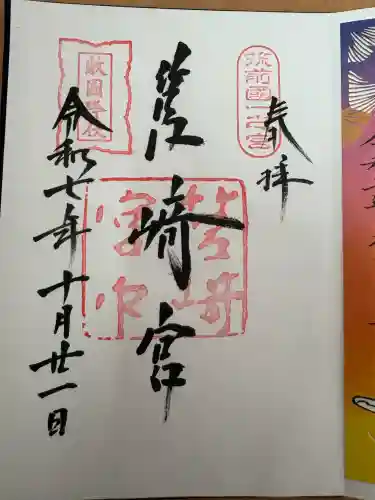 奉拝
筑前國一之宮
筥崎宮
敵國降伏
令和七年十月廿一日